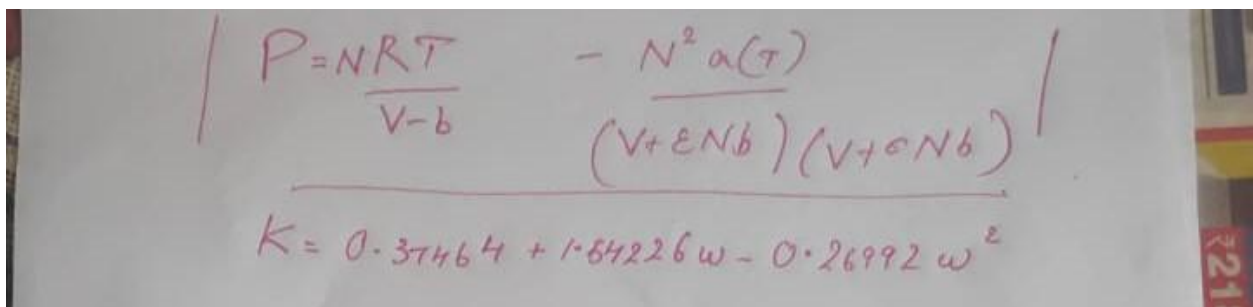 P=NRT/V-b - N² a(T)/(V+εNb)(V+σNb)
K= 0.37464 + 1.54226 ω - 0.26992 ω²
₹21